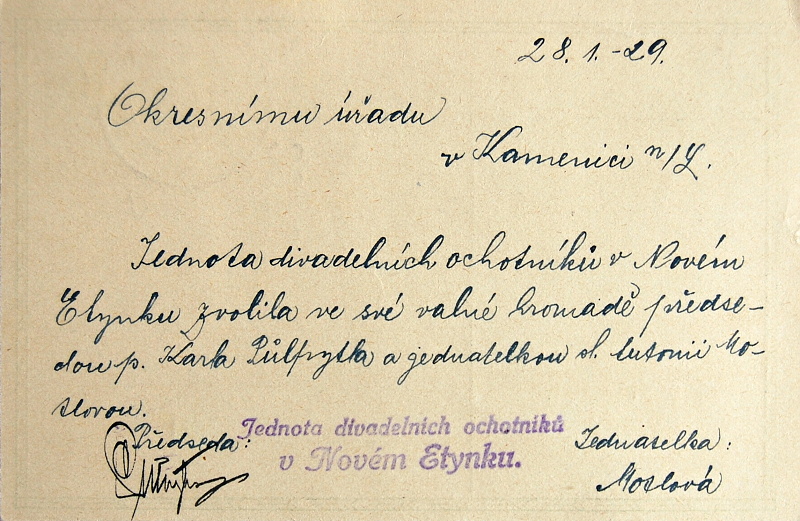 28. 1. - 29.
Okresnímu úřadu
v Kamenici n/L.
Jednota divadelních ochotníků v Novém
Etynku zvolila ve své valné hromadě předse-
dou p. Karla Půlpytla a jednatelkou sl. Antonii Mo-
tlovou.
Předseda:
Jednota divadelních ochotníků
v Novém Etynku.
Jednatelka:
Motlová